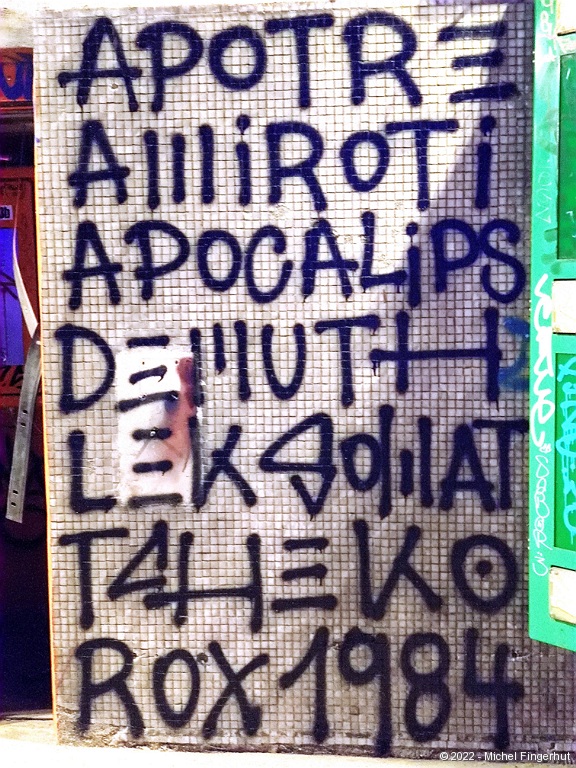 APOTRE
AMiROTi
APOCALiPS
DEMUTH
LEK SOMAT
TCHEKO
ROX 1984
© 2022 - Michel Fingerhut